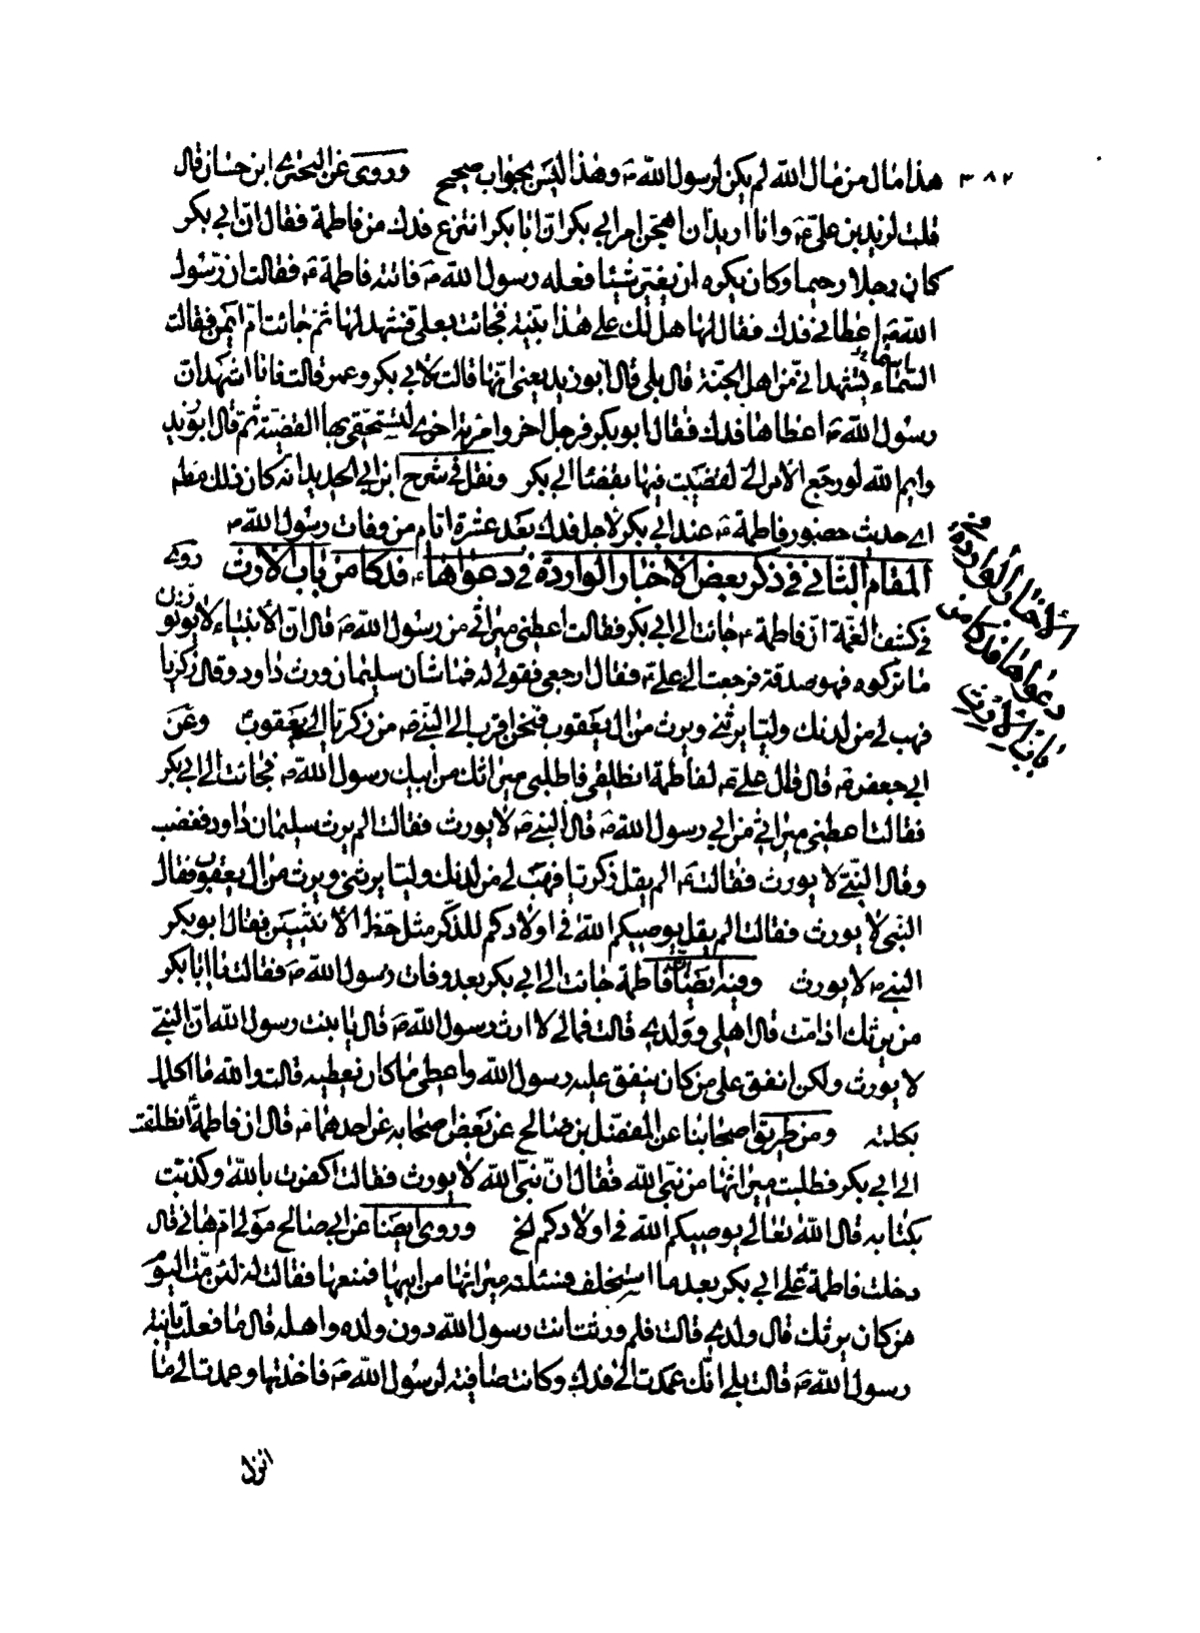 ٣٨٢
هذا مال من مال الله لم يكن لرسول الله ص وهذا ليس بجواب صحيح وروى عن البحتري ابن حسان قال
قلت لزيد بن علي ع وانا اريد ان اهجن امر ابي بكر ان ابا بكر انتزع فدك من فاطمة فقال ان ابي بكر
كان رجلا رحيما وكان يكره ان يغير شيئا فعله رسول الله ص فاتته فاطمة ع فقالت ان رسول
الله ص اعطاني فدك فقال لها هل لك على هذا بينة فجائت بعلي فشهد لها ثم جائت ام ايمن فقالت
الستما تشهد اني من اهل الجنة قال بلى قال ابو زيد يعني انها قالت لابي بكر وعمر قالت فانا اشهد ان
رسول الله ص اعطاها فدك فقال ابو بكر فرجل اخر وامرئة اخرى لتستحقي بها القضية ثم قال ابو زيد
وايم الله لو رجع الامر الي لقضيت فيها بقضاء ابي بكر ونقل في شرح ابن ابي الحديد انه كان ذلك
اي حديث حضور فاطمة ع عند ابي بكر لاجل فدك بعد عشرة ايام من وفات رسول الله ص
المقام الثاني في ذكر بعض الاخبار الواردة في دعواها ع فدكا من باب الارث روى
في كشف الغمة ان فاطمة ع جائت الى ابي بكر فقالت اعطني ميراثي من رسول الله ص قال ان الانبياء لا يورثون
ما تركوه فهو صدقة فرجعت الى علي ع فقال ارجعي فقولي له فما شان سليمان ورث داود وقال زكريا
فهب لي من لدنك وليا يرثني ويرث من ال يعقوب فنحن اقرب الى النبي ص من زكريا الى يعقوب وعن
ابي جعفر ع قال قال علي ع لفاطمة انطلقي فاطلبي ميراثك من ابيك رسول الله ص فجائت الى ابي بكر
فقالت اعطني ميراثي من ابي رسول الله ص قال النبي ص لا يورث فقالت الم يرث سليمان داود فغضب
وقال النبي لا يورث فقالت ع الم يقل زكريا فهب لي من لدنك وليا يرثني ويرث من ال يعقوب فقال
النبي لا يورث فقالت الم يقل يوصيكم الله في اولادكم للذكر مثل حظ الانثيين فقال ابو بكر
النبي ص لا يورث وفيه ايضا ان فاطمة جائت الى ابي بكر بعد وفات رسول الله ص فقالت يا ابا بكر
من يرثك اذا مت قال اهلي وولدي قالت فمالي لا ارث رسول الله ص قال يا بنت رسول الله ان النبي
لا يورث ولكن انفق على من كان ينفق عليه رسول الله واعطي ما كان يعطيه قالت والله ما اكلمك
بكلمة ومن طريق اصحابنا عن المفضل بن صالح عن بعض اصحابه عن احدهما ع قال ان فاطمة انطلقت
الى ابي بكر فطلبت ميراثها من نبي الله فقال ان نبي الله لا يورث فقالت اكفرت بالله وكذبت
بكتابه قال الله تعالى يوصيكم الله في اولادكم الخ وروى ايضا عن ابي صالح مولى ام هاني قال
دخلت فاطمة ع على ابي بكر بعد ما استخلف فسئلته ميراثها من ابيها فمنعها فقالت له لئن مت اليوم
من كان يرثك قال ولدي قالت فلم ورثت انت رسول الله دون ولده واهله قال ما فعلت يا بنت
رسول الله ص قالت بلى انك عمدت الى فدك وكانت صافية لرسول الله ص فاخذتها وعمدت الى ما
انزل
الاخبار الواردة في
دعواها فدكا من
باب الارث